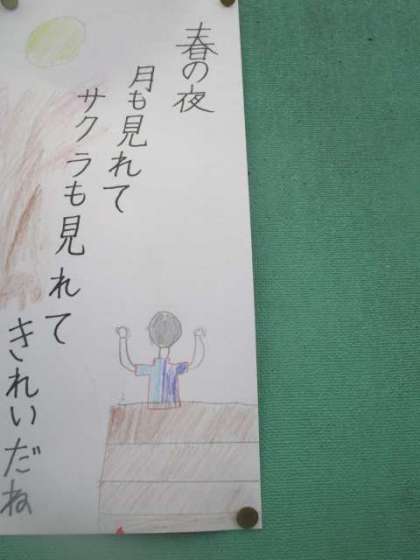 春の夜
月も見れて
サクラも見れて
きれいだね